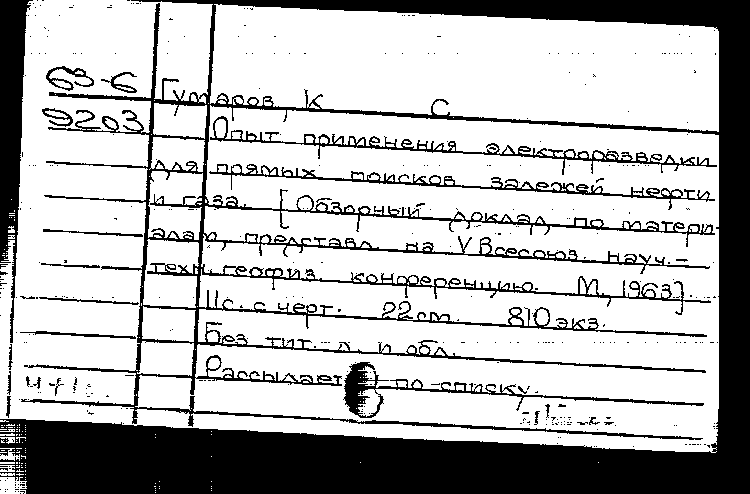 63-6
9203
Гумаров, К С
Опыт применения электроразведки
для прямых поисков залежей нефти
и газа. [Обзорный доклад, по матери-
алам, представл. на V Всесоюз. науч.-
техн. геофиз. конференцию. М., 1963].
11с. с черт. 22 см. 810 экз.
Без тит. л. и обл.
Рассылает по списку.